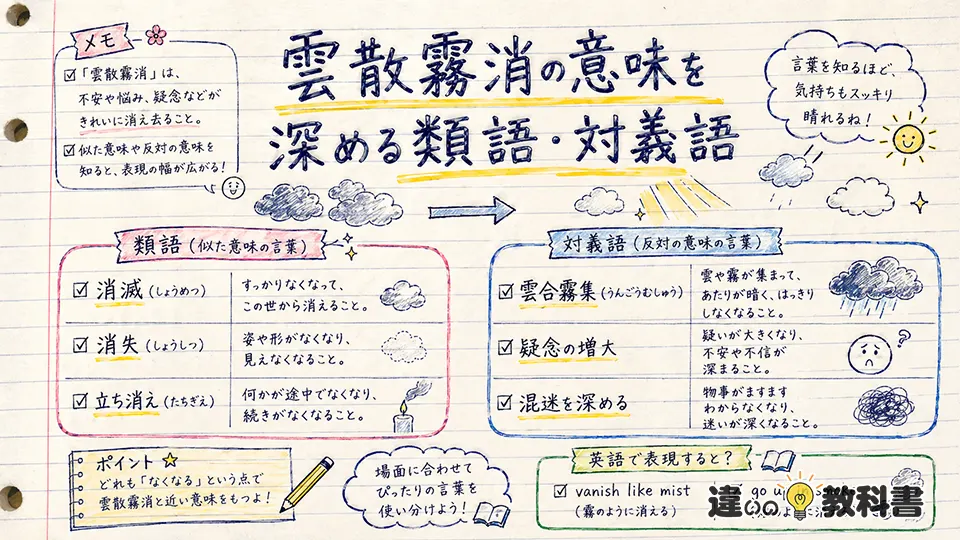 メモ
雲散霧消の意味を
深める類語・対義語
☑「雲散霧消」は、
不安や悩み、疑念などが
きれいに消え去ること。
☑似た意味や反対の意味を
知ると、表現の幅が広がる!
言葉を知るほど、
気持ちもスッキリ
晴れるね!
類語(似た意味の言葉)
☑消滅(しょうめつ)
すっかりなくなって、
この世から消えること。
☑消失(しょうしつ)
姿や形がなくなり、
見えなくなること。
☑立ち消え(たちぎえ)
何かが途中でなくなり、
続きがなくなること。
対義語(反対の意味の言葉)
☑雲合霧集(うんごうむしゅう)
雲や霧が集まって、
あたりが暗く、はっきり
しなくなること。
☑疑念の増大
疑いが大きくなり、
不安や不信が
深まること。
?
☑混迷を深める
物事がますます
わからなくなり、
迷いが深くなること。
ポイント
どれも「なくなる」という点で
雲散霧消と近い意味をもつよ!
場面に合わせて
ぴったりの言葉を
使い分けよう!
英語で表現すると?
☑ vanish like mist
(霧のように消える)
go up
違いの教科書